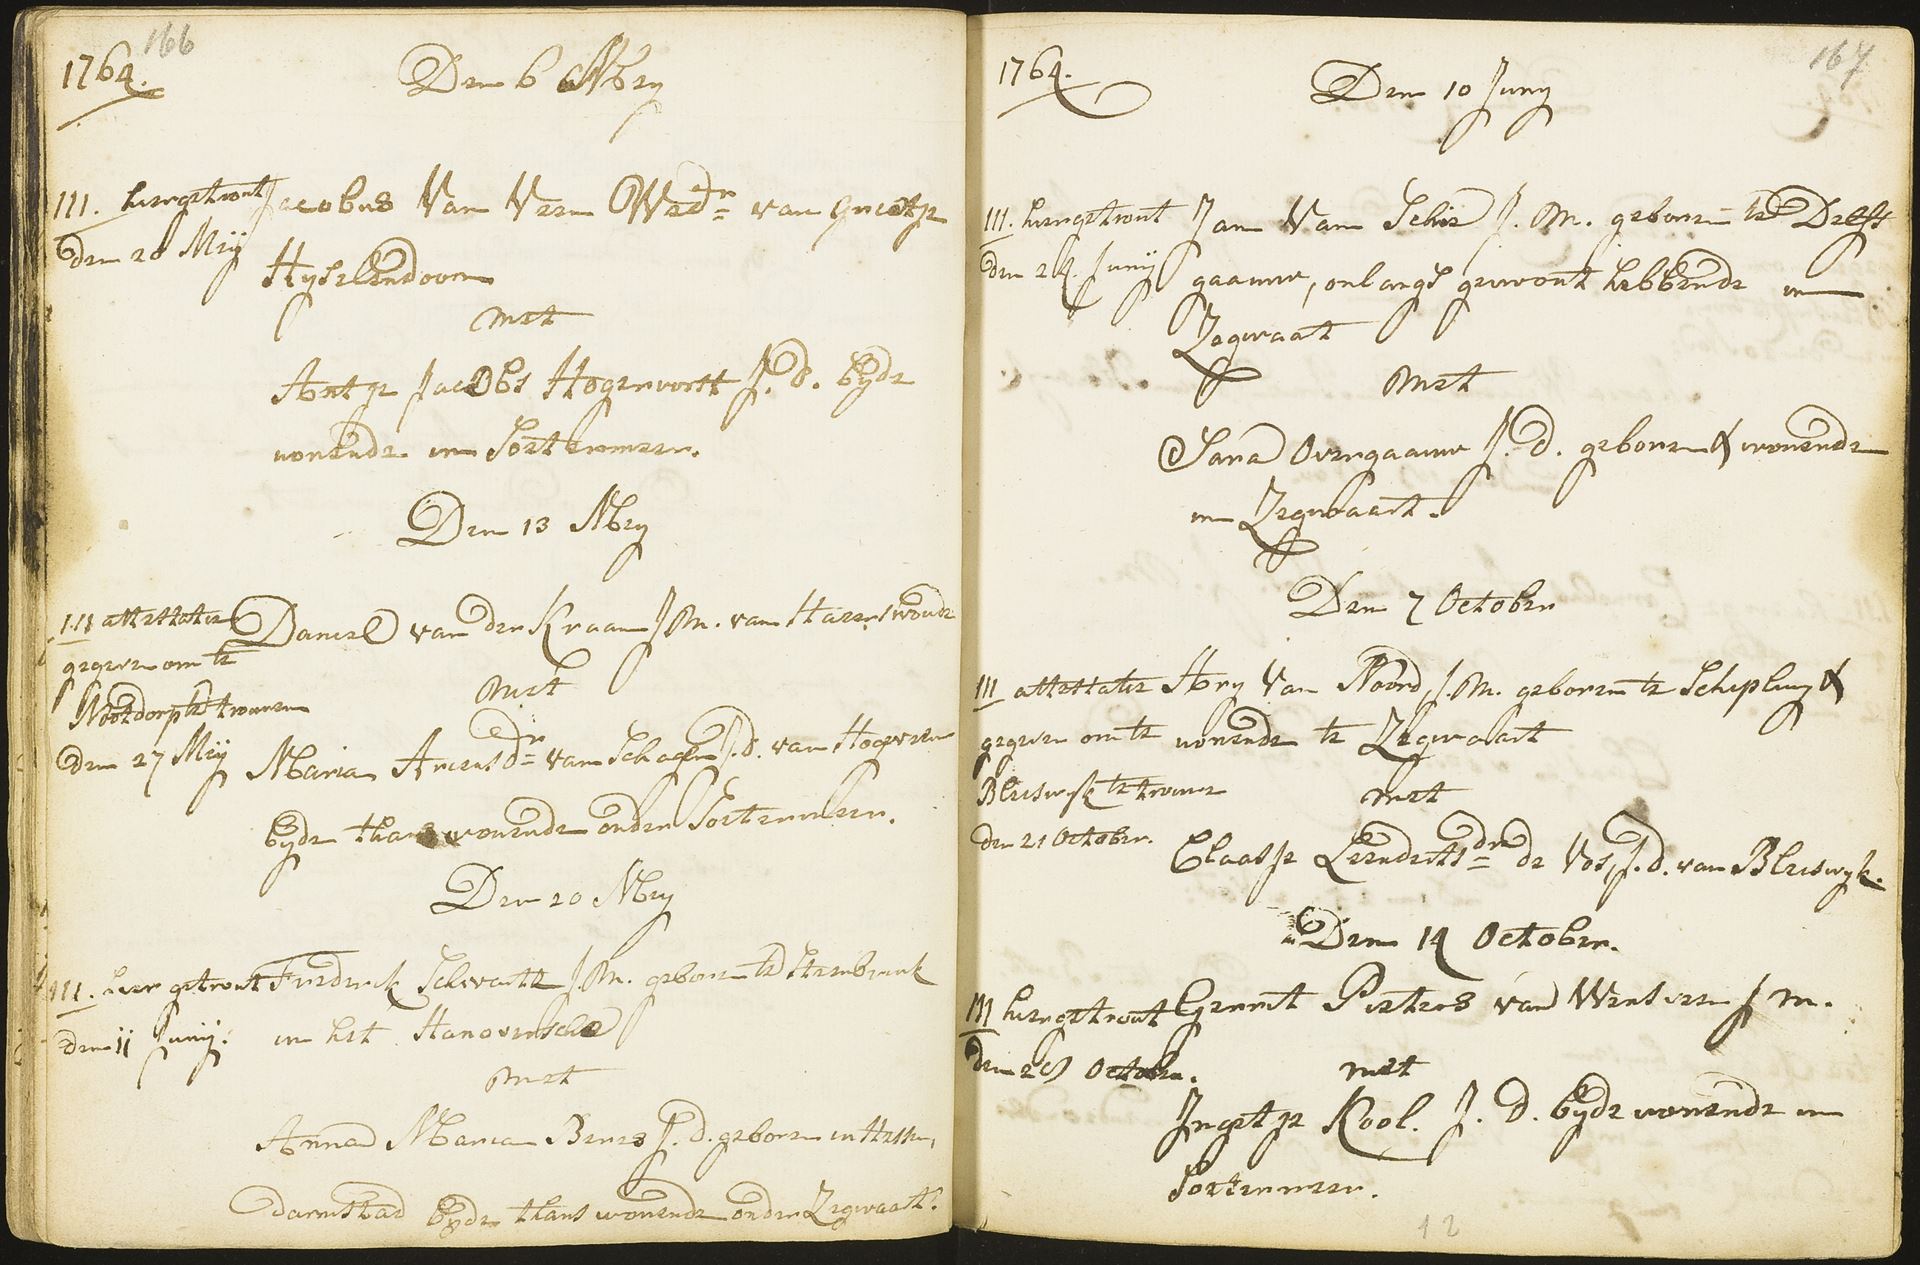 166
1764.
Den 6 Mey
III. hier getrout Jacobus Van Veen Wedr van Grietje
den 20 Meij Hijselendoorn
met
Antje Jacobs Hogervorst J. d. beyde
wonende in Soetermeer.
Den 13 Mey
III attestatie Daniel van der Kraan J M. van Haserswoude
gegeven om te met
Nootdorp te trouwen
den 27 Meij Maria Ariensdr van Schagen J. d. van Hogeveen
beyde thans wonende onder Soetermeer.
Den 20 Mey
III. hier getrout Frederik Schwartz J. M. geboren te Steinbrink
den 11 Junij. in het Hanoversche
met
Anna Maria J. d. geboren in Hessen,
darmstad beyde thans wonende onder Zegwaart.
167
1764.
Den 10 Juny
III. hier getrout Jan Van Schie J. M. geboren te Delfs
den 24 Junij gaauw, onlangs gewoont hebbende in
Zegwaart
met
Sara Overgaauw J. d. geboren & wonende
in Zegwaart.
Den 7 October
III attestatie Ary Van Noord, J. M. geboren te Schipluy &
gegeven om te wonende te Zegwaart
Bleiswyk te trouwe met
den 21 October. Claasje Leendertsdr de Vos, J. d. van Bleiswyk.
Den 14 October.
III hier getrout Gerrit Pieters van Winsveen J M.
den 28 October. met
Ingetje Kool. J. d. beyde wonende in
Soetermeer.
12